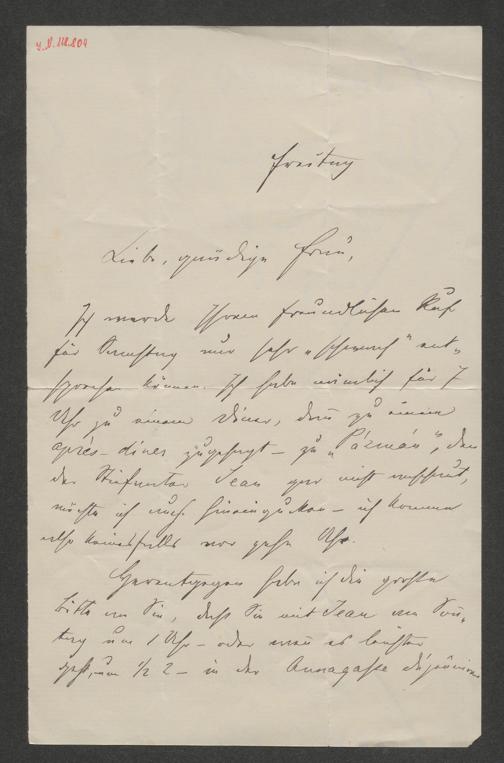 I. N. 111.804
Freitag
Liebe, gnädige Frau,
Ich werde Ihrem freundlichen Ruf
für Samstag nur sehr „schwach" ent-
sprechen können. Ich habe nämlich für 7
Uhr zu einem Diner, dann zu einem
après-diner zugesagt – zu „Pázmán", den
der Stiefvater Jean gar nicht
möchte ich auch hineingucken – ich komme
also keinesfalls vor zehn Uhr.
Hierentgegen habe ich die große
Bitte an Sie, daß Sie mit Jean am Sonn-
tag um 1 Uhr – oder wenn es leichter
geht, um ½ 2 – in der Annagasse déjeuniren